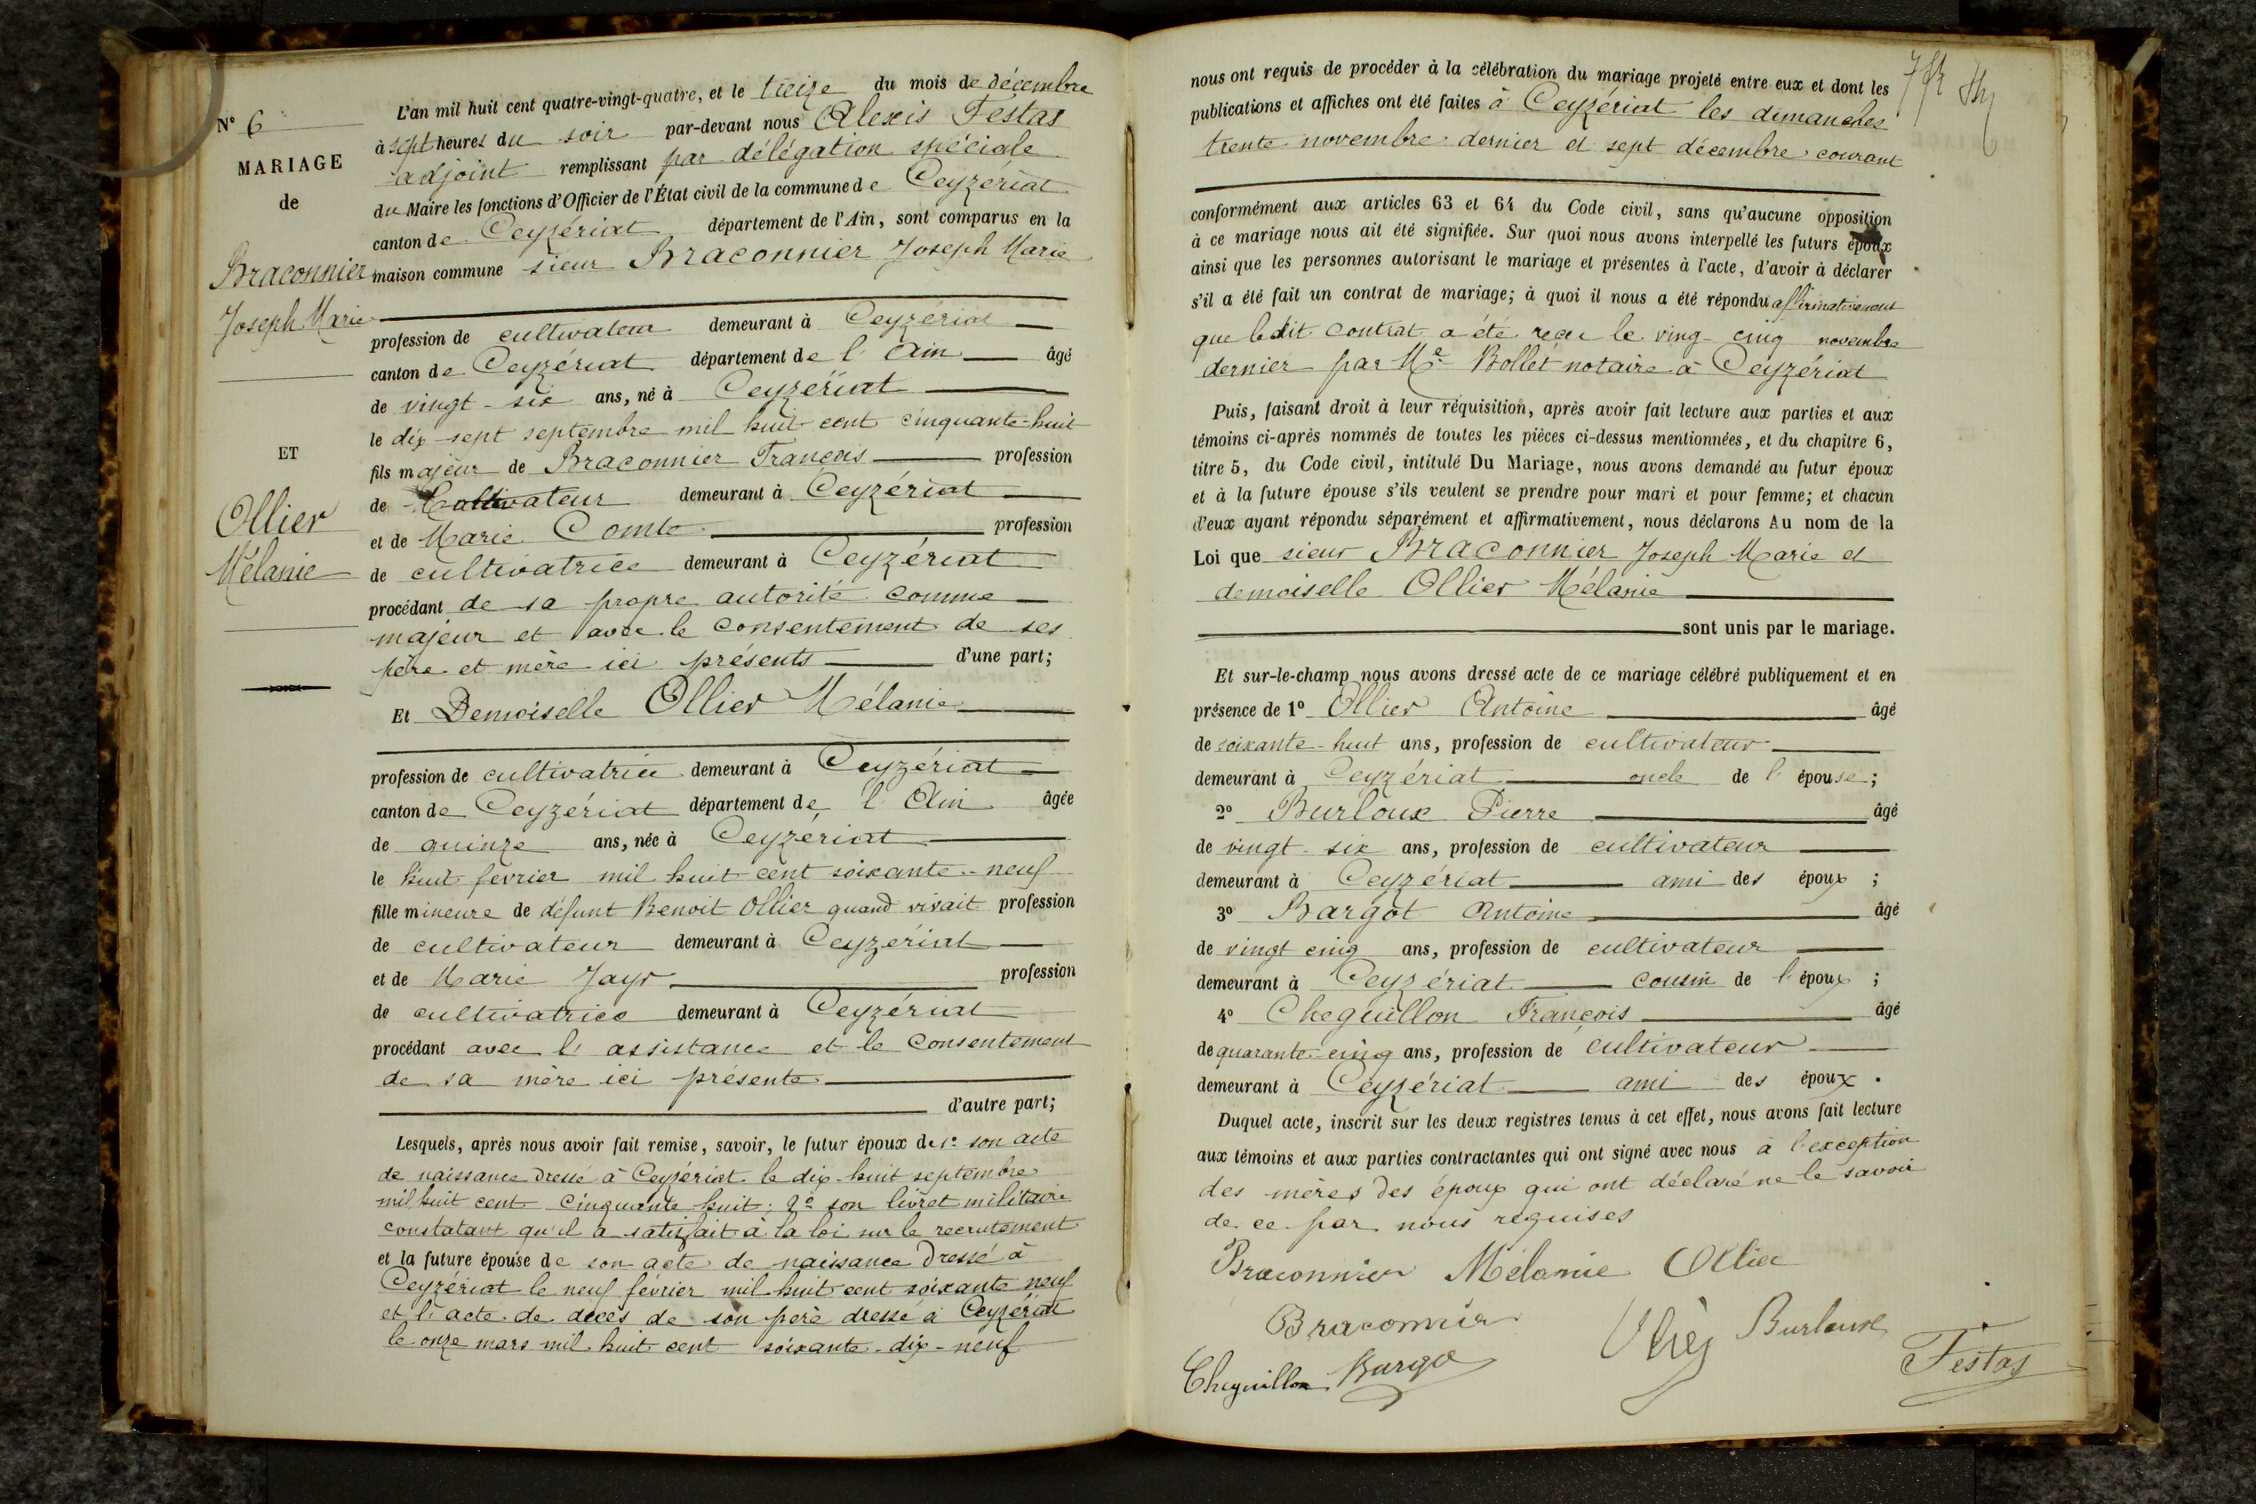 N° 6
MARIAGE
de
Braconnier
Joseph Marie
ET
Ollier
Mélanie
L'an mil huit cent quatre-vingt-quatre, et le treize du mois de décembre
à sept heures du soir par-devant nous Alexis Festas
adjoint remplissant par délégation spéciale
du Maire les fonctions d'Officier de l'État civil de la commune de Ceyzériat
canton de Ceyzériat département de l'Ain, sont comparus en la
maison commune sieur Braconnier Joseph Marie
profession de cultivateur demeurant à Ceyzériat
canton de Ceyzériat département de l'Ain âgé
de vingt-six ans, né à Ceyzériat
le dix-sept septembre mil huit cent cinquante-huit
fils majeur de Braconnier François profession
de Cultivateur demeurant à Ceyzériat
et de Marie Comte profession
de cultivatrice demeurant à Ceyzériat
procédant de sa propre autorité comme
majeur et avec le consentement de ses
père et mère ici présents d'une part;
Et Demoiselle Ollier Mélanie
profession de cultivatrice demeurant à Ceyzériat
canton de Ceyzériat département de l'Ain âgée
de quinze ans, née à Ceyzériat
le huit février mil huit cent soixante-neuf
fille mineure de défunt Benoit Ollier quand vivait profession
de cultivateur demeurant à Ceyzériat
et de Marie Jayr profession
de cultivatrice demeurant à Ceyzériat
procédant avec l'assistance et le consentement
de sa mère ici présente
d'autre part;
Lesquels, après nous avoir fait remise, savoir, le futur époux de 1° son acte
de naissance dressé à Ceyzériat le dix-huit septembre
mil huit cent cinquante huit; 2° son livret militaire
constatant qu'il a satisfait à la loi sur le recrutement
et la future épouse de son acte de naissance dressé à
Ceyzériat le neuf février mil huit cent soixante neuf
et l'acte de décès de son père dressé à Ceyzériat
le onze mars mil huit cent soixante-dix-neuf
nous ont requis de procéder à la célébration du mariage projeté entre eux et dont les
publications et affiches ont été faites à Ceyzériat les dimanches
trente novembre dernier et sept décembre courant
conformément aux articles 63 et 64 du Code civil, sans qu'aucune opposition
à ce mariage nous ait été signifiée. Sur quoi nous avons interpellé les futurs époux
ainsi que les personnes autorisant le mariage et présentes à l'acte, d'avoir à déclarer
s'il a été fait un contrat de mariage; à quoi il nous a été répondu affirmativement
que ledit contrat a été reçu le ving-cinq novembre
dernier par Me Bollet notaire à Ceyzériat
Puis, faisant droit à leur réquisition, après avoir fait lecture aux parties et aux
témoins ci-après nommés de toutes les pièces ci-dessus mentionnées, et du chapitre 6,
titre 5, du Code civil, intitulé Du Mariage, nous avons demandé au futur époux
et à la future épouse s'ils veulent se prendre pour mari et pour femme; et chacun
d'eux ayant répondu séparément et affirmativement, nous déclarons Au nom de la
Loi que sieur Braconnier Joseph Marie et
demoiselle Ollier Mélanie
sont unis par le mariage.
Et sur-le-champ nous avons dressé acte de ce mariage célébré publiquement et en
présence de 1° Ollier Antoine âgé
de soixante-huit ans, profession de cultivateur
demeurant à Ceyzériat oncle de l'épouse;
2° Burloux Pierre âgé
de vingt-six ans, profession de cultivateur
demeurant à Ceyzériat ami des époux;
3° Bargot Antoine âgé
de vingt cinq ans, profession de cultivateur
demeurant à Ceyzériat cousin de l'époux;
4° Cheguillon François âgé
de quarante-cinq ans, profession de cultivateur
demeurant à Ceyzériat ami des époux.
Duquel acte, inscrit sur les deux registres tenus à cet effet, nous avons fait lecture
aux témoins et aux parties contractantes qui ont signé avec nous à l'exception
des mères des époux qui ont déclaré ne le savoir
de ce par nous requises
Braconnier Mélanie Ollier
Braconnier Burloux
Cheguillon Bargo Festas